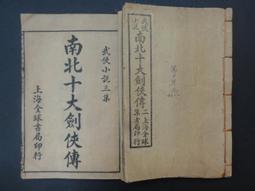 武俠小説三集
南北十大劍俠傳
上海全球書局印行
武俠小説
南北十大劍俠傳
二集
上海全球書局印行